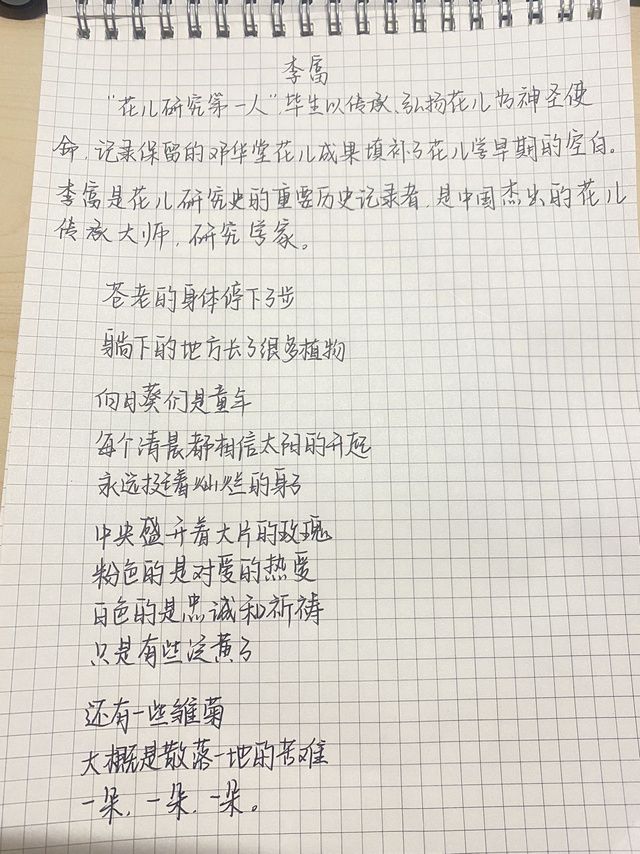 李富
“花儿研究第一人”，毕生以传承、弘扬花儿为神圣使
命，记录保留的邓华堂花儿成果填补了花儿学早期的空白。
李富是花儿研究史的重要历史记录者，是中国杰出的花儿
传承大师，研究学家。
苍老的身体停下了步
躺下的地方长了很多植物
向日葵们是童年
每个清晨都相信太阳的升起
永远挺着灿烂的身子
中央盛开着大片的玫瑰
粉色的是对爱的热爱
白色的是忠诚和祈祷
只是有些淀黄了
还有一些雏菊
大概是散落一地的苦难
一朵，一朵，一朵。